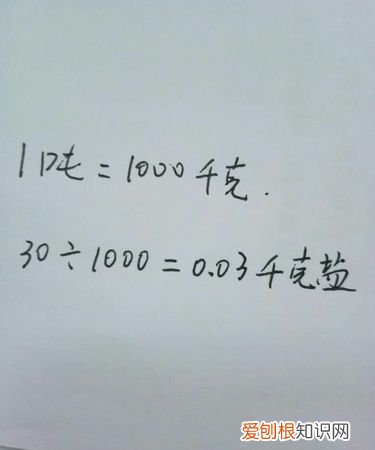 1吨=1000千克.
30÷1000=0.03千克盐
爱刨根知识网